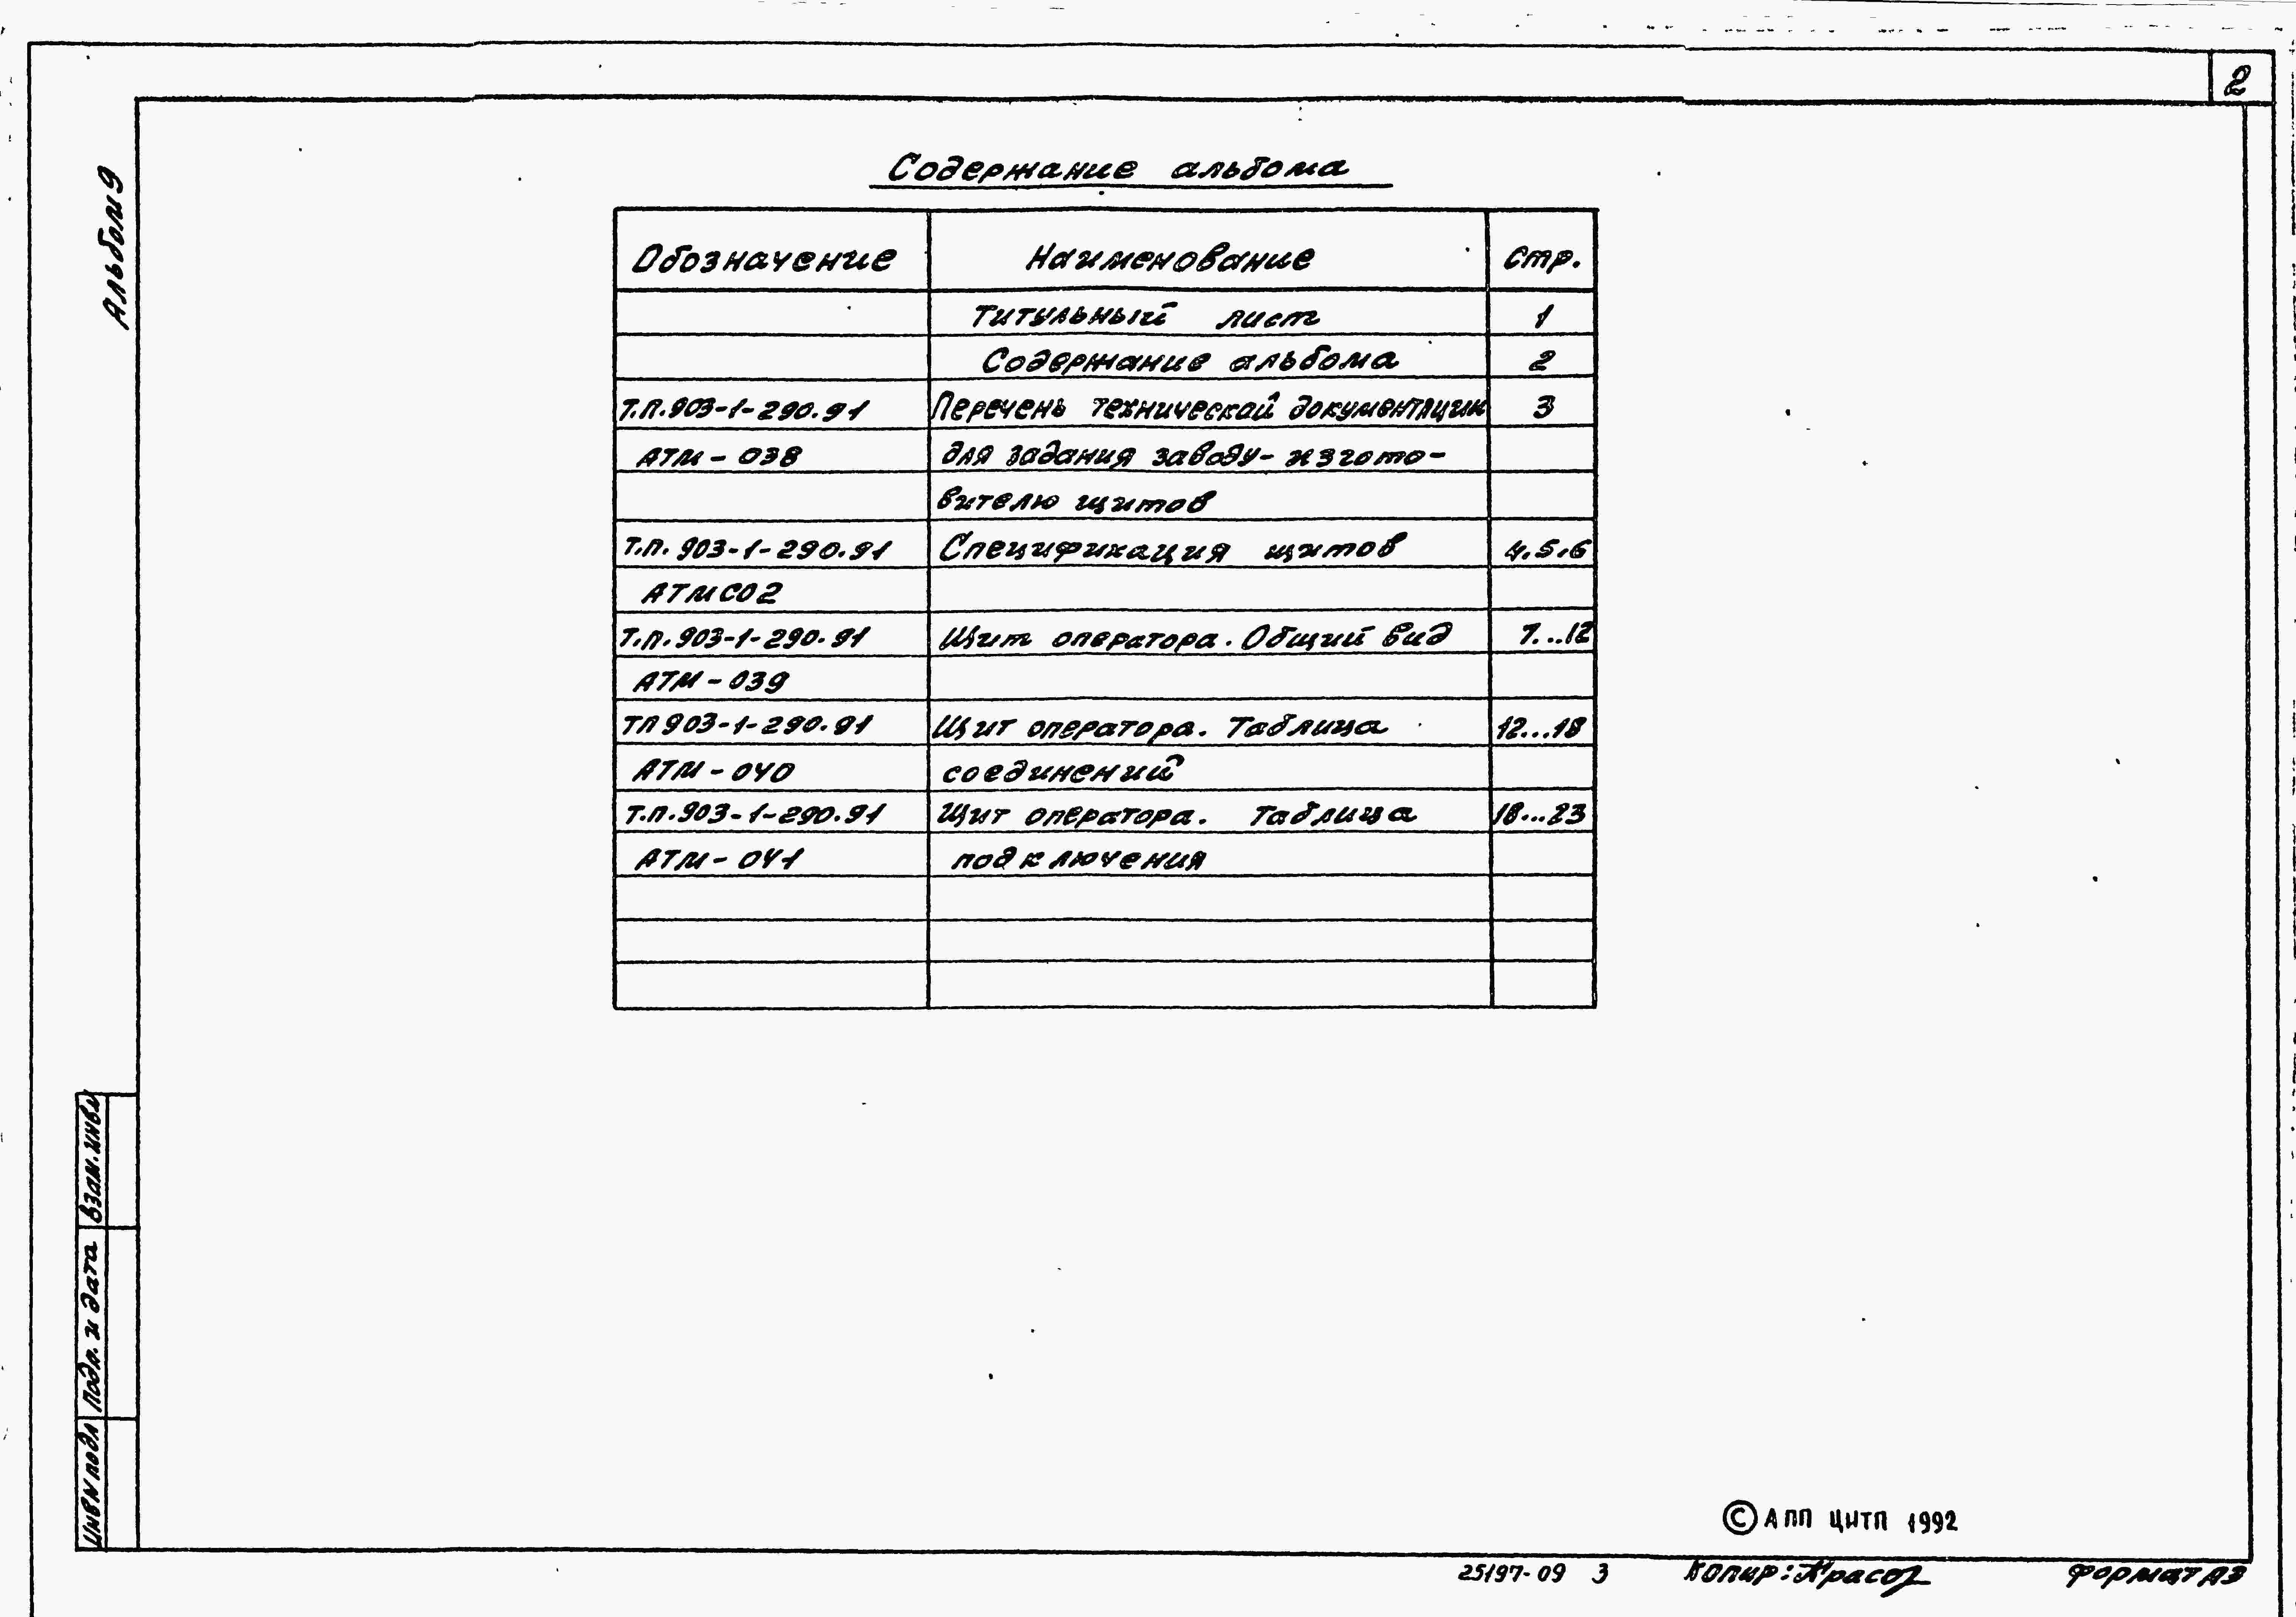 2
Альбом 9
Содержание альбома
Обозначение Наименование Стр.
Титульный лист 1
Содержание альбома 2
Т.П.903-1-290.91 Перечень технической документации 3
АТМ-038 для задания заводу-изгото-
вителю щитов
Т.П. 903-1-290.91 Спецификация щитов 4.5.6
АТМСО2
Т.П. 903-1-290.91 Щит оператора. Общий вид 7...12
АТМ-039
ТП 903-1-290.91 Щит оператора. Таблица 12...18
АТМ-040 соединений
Т.П. 903-1-290.91 Щит оператора. Таблица 18...23
АТМ-041 подключения
Взам.инв№
Подп. и дата
Инв№подл
© АПП ЦИТП 1992
25197-09 3 Копир: Формат А3